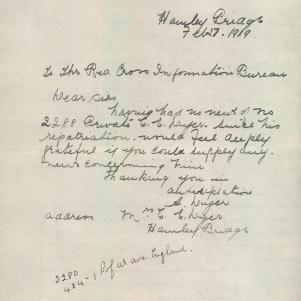 Hamley Bridge
Feb 27. 1919
To The Red Cross Information Bureau
Dear Sirs
having had no news of No
2288 Private C. C. Dyer. since his
repatreation. would feel deeply
grateful if you could supply any
news concerning him
Thanking you in
anticipation
C. Dyer
address Mrs C. C. Dyer
Hamley Bridge
3280
484-1 P of W arr England.